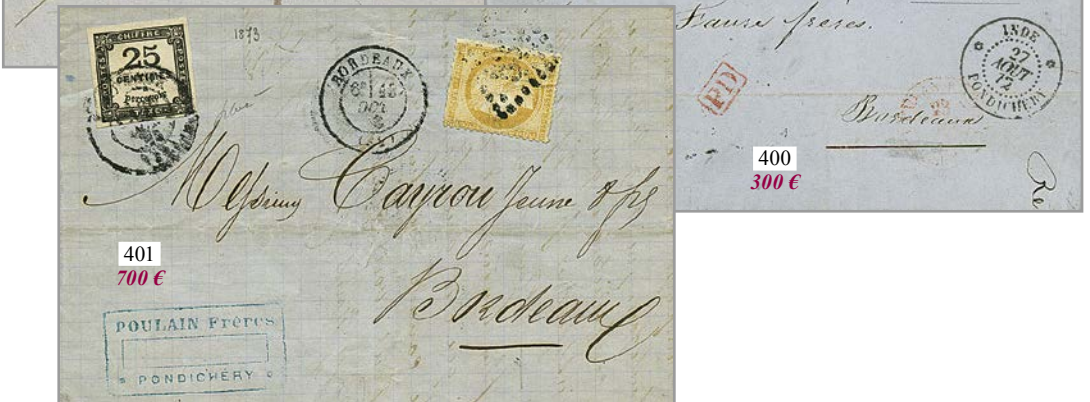 CHIFFRE
25
CENTIMES
à percevoir
1873
BORDEAUX
18
OCT
Messieurs Cayrou Jeune & fils
Bordeaux
401
700 €
POULAIN Frères
PONDICHÉRY
Faure frères.
PD
INDE
27
AOUT
72
PONDICHERY
Bordeaux
400
300 €
Re